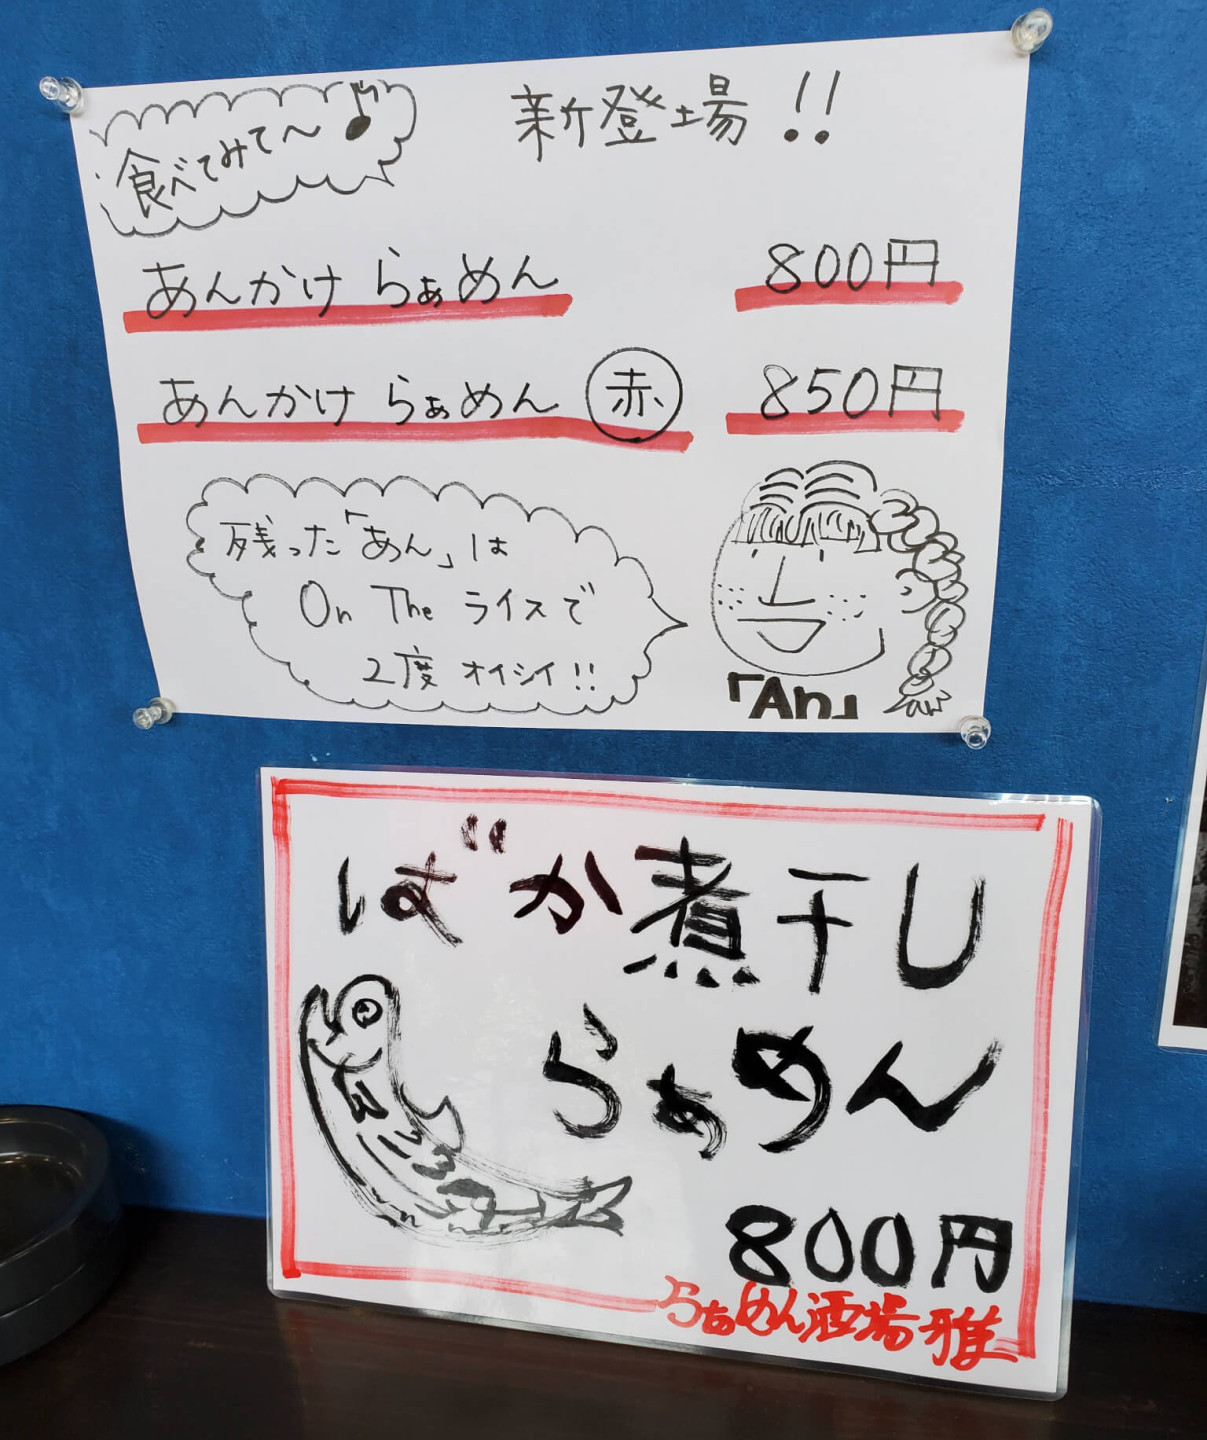 食べてみて〜♪
新登場!!
あんかけ らぁめん 800円
あんかけ らぁめん 赤 850円
残った「あん」は
On The ライスで
2度 オイシイ!!
「An」
ばか煮干し
らぁめん
800円
らぁめん酒場 雅